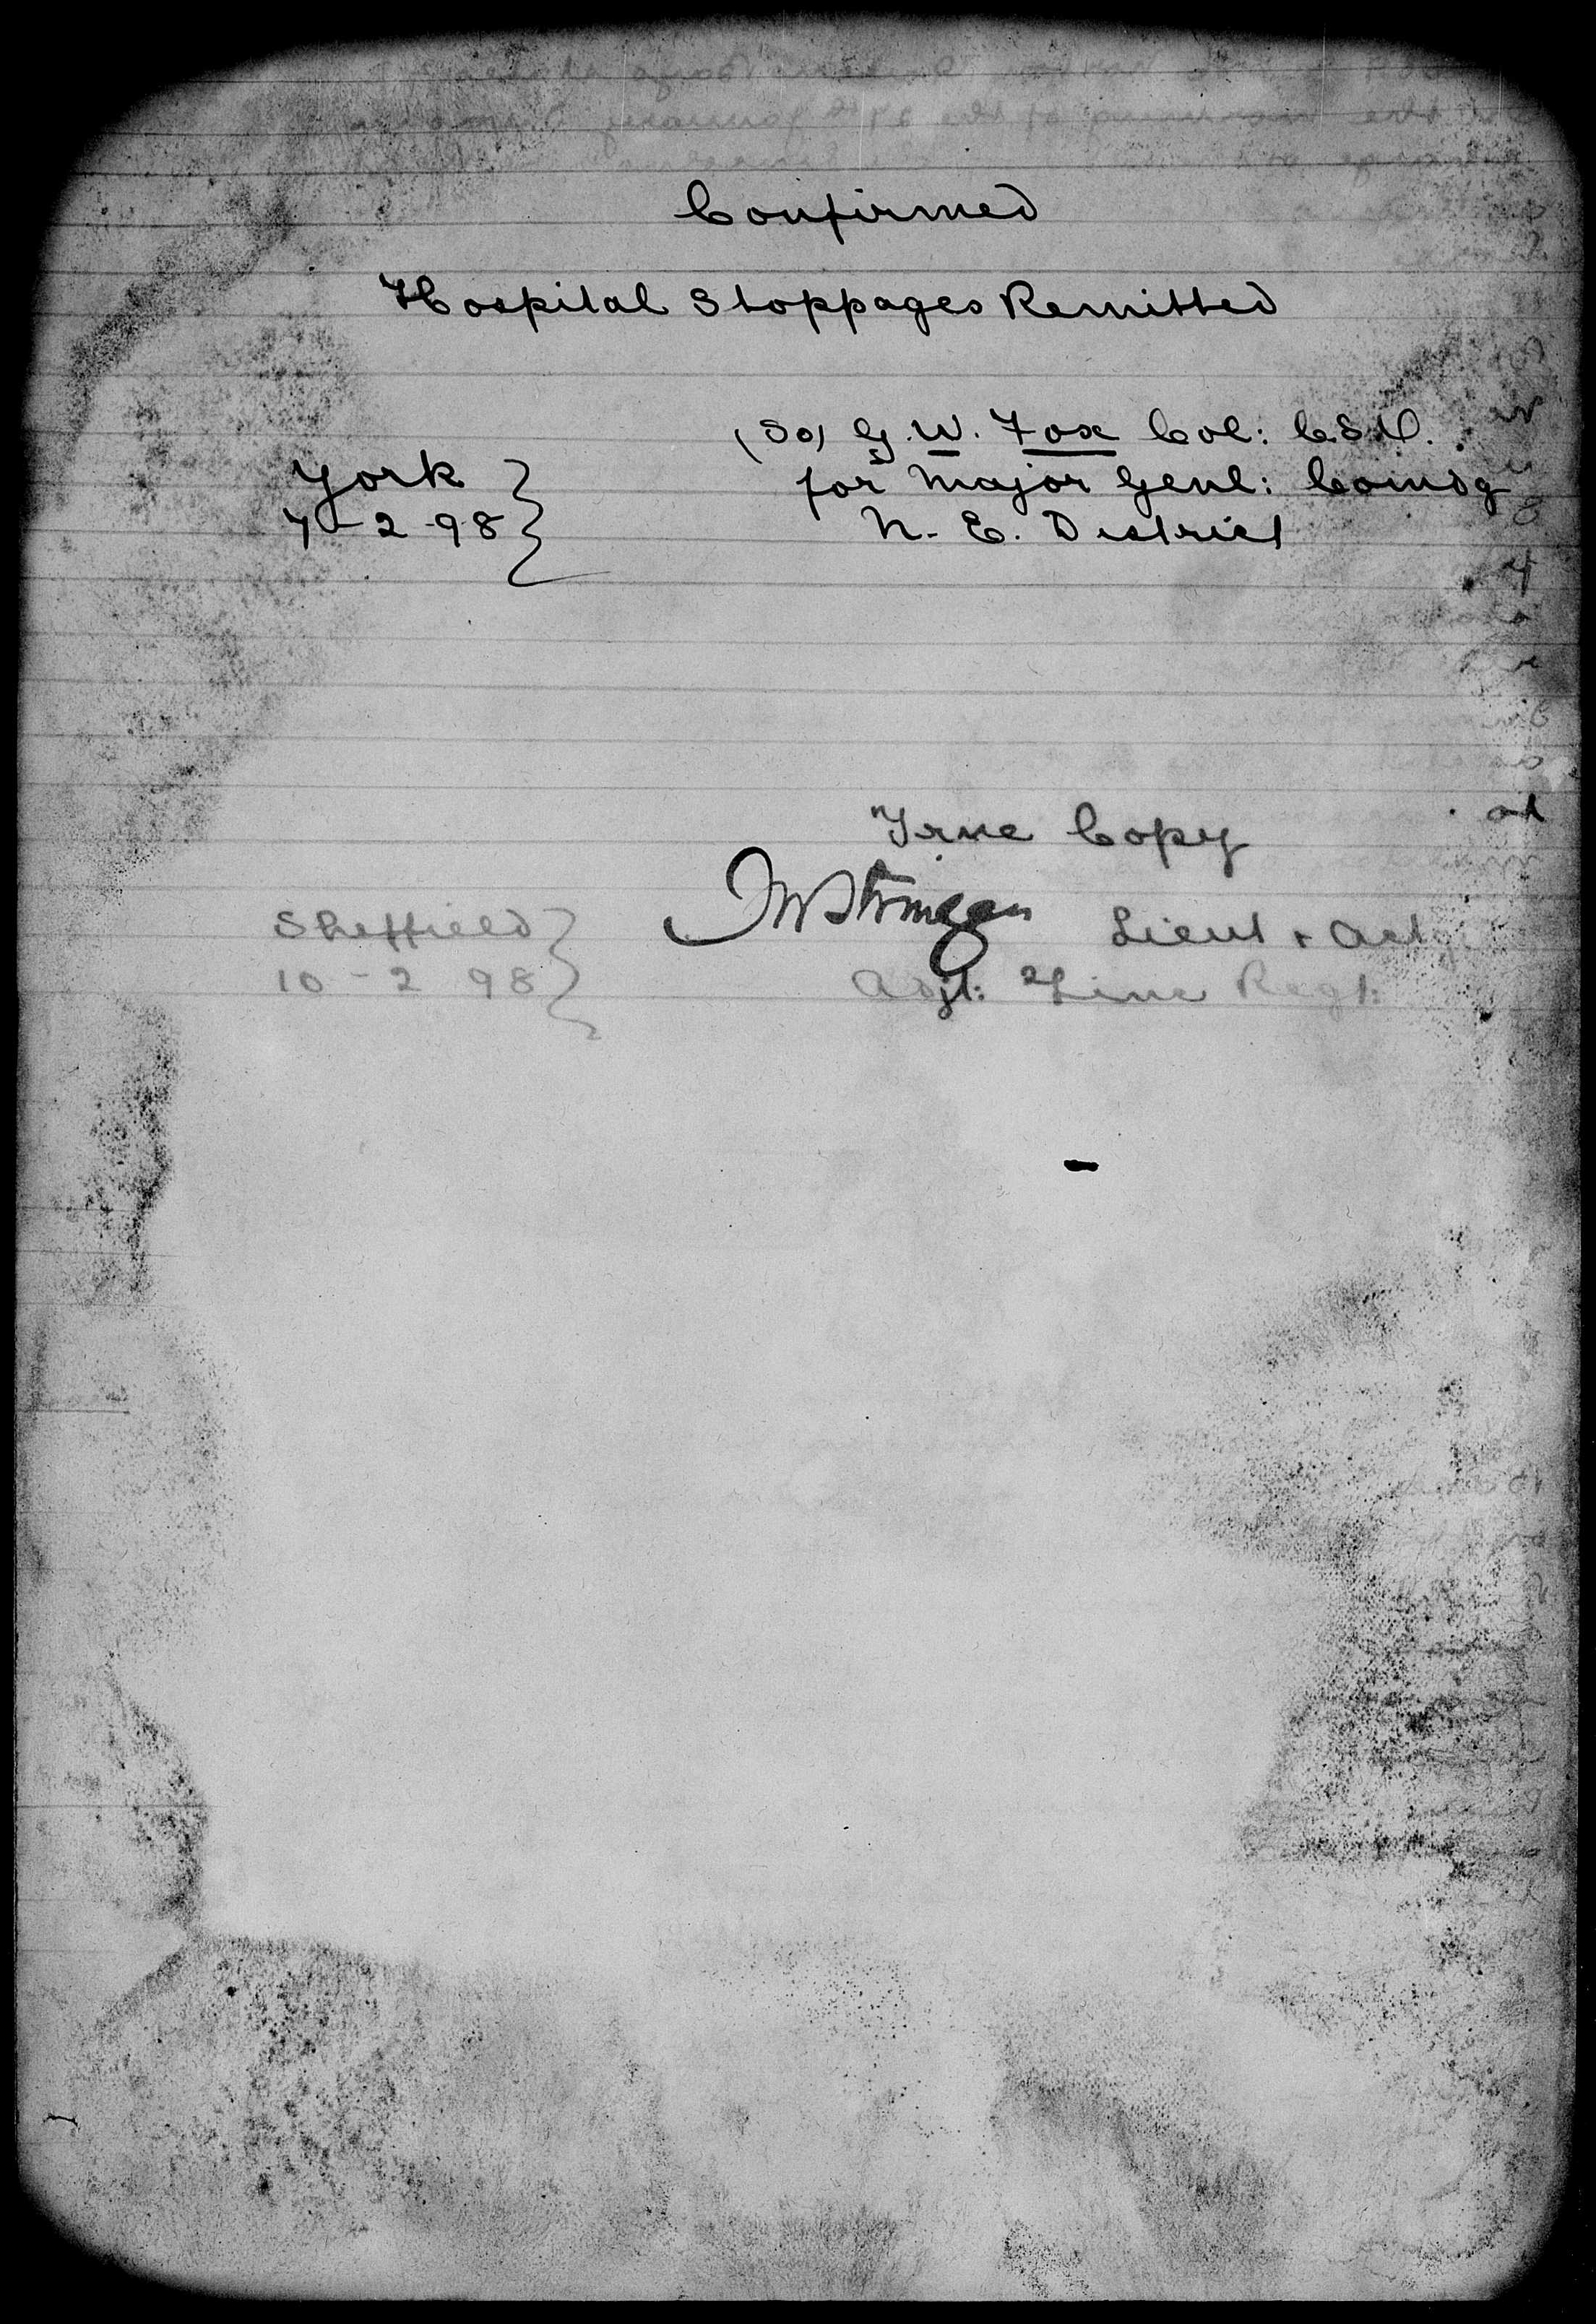 Confirmed
Hospital Stoppages Remitted
(Sd) G. W. Fox Col: C.S.O.
York
for Major Genl: Comdg
7-2-98
N. E. District
True Copy
Lieut + Actg
Sheffield
10-2 98
Adjt: Line Regt: